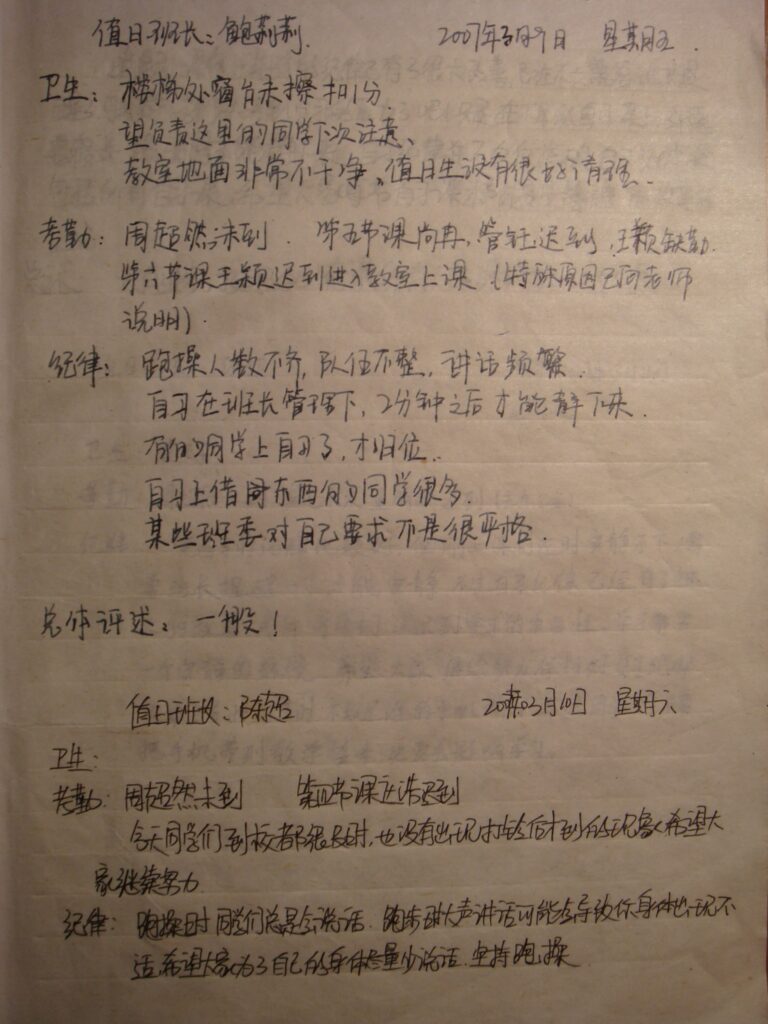 值日班长：鲍莉莉 2007年3月9日 星期五
卫生：楼梯处窗台未擦扣1分
望负责这里的同学下次注意、
教室地面非常不干净、值日生没有很好清理、
考勤：周超然未到．第五节课尚冉，管钰迟到，王颖缺勤．
第六节课王颖迟到进入教室上课（特殊原因已向老师
说明）．
纪律：跑操人数不齐，队伍不整，讲话频繁．
自习在班长管理下，2分钟之后才能静下来．
有的同学上自习了，才归位．
自习上借东西的同学很多．
某些班委对自己要求不是很严格．
总体评述：一般！
值日班长：陈超 2007年03月10日 星期六
卫生：
考勤：周超然未到 第四节课 浩迟到
今天同学们到校都很及时，也没有出现打铃后才到的现象，希望大
家继续努力
纪律：跑操时同学们总是会说话．跑步时大声讲话可能会导致你身体出现不
适，希望大家为了自己的身体尽量少说话．坚持跑操